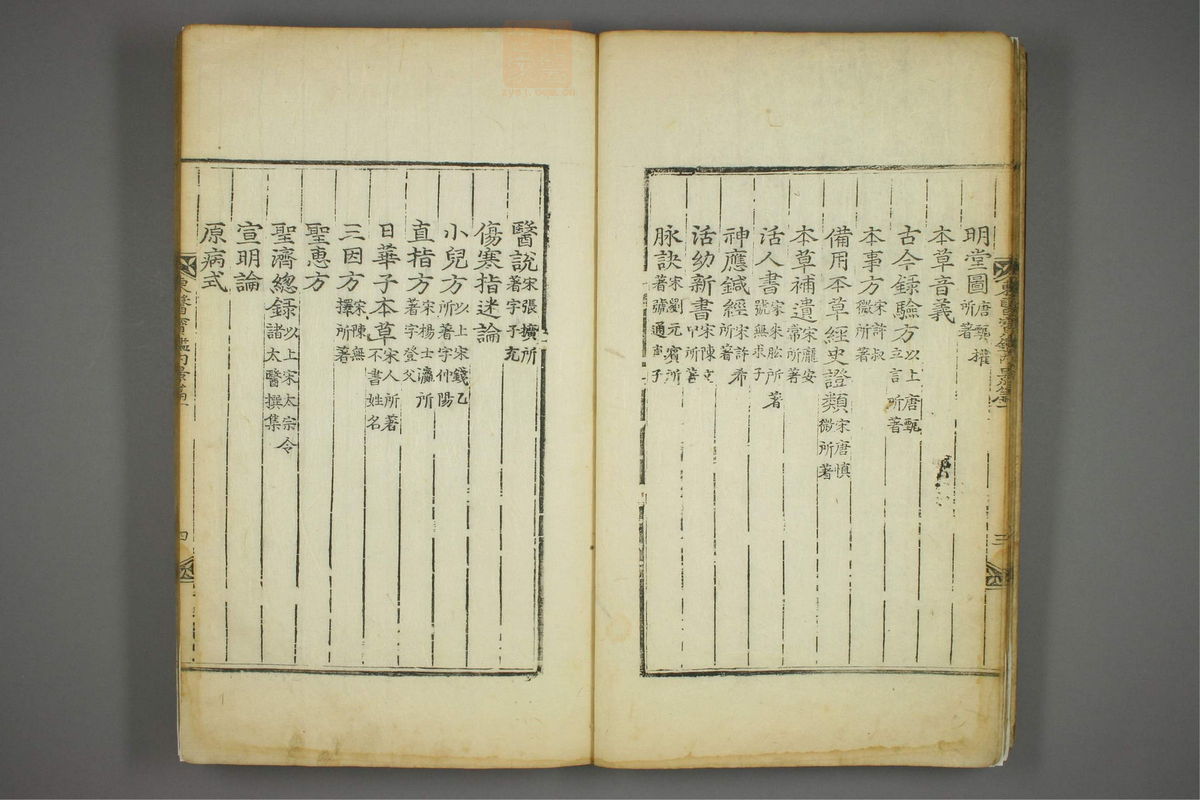 明堂圖唐甄權所著
本草音義
古今録驗方以上唐甄立言所著
本事方宋許叔微所著
備用本草經史證類宋唐慎微所著
本草補遺宋龐安常所著
活人書宋朱肱所著號無求子
神應鍼經宋許希所著
活幼新書宋陳文中所著
脉訣宋劉元賓所著號通真子
醫說宋張擴所著字子充
傷寒指迷論
小兒方以上宋錢乙所著字仲陽
直指方宋楊士瀛所著字登父
日華子本草宋人所著不書姓名
三因方宋陳無擇所著
聖惠方
聖濟總録以上宋太宗令諸太醫撰集
宣明論
原病式
東醫寶鑑內景篇一
三
四